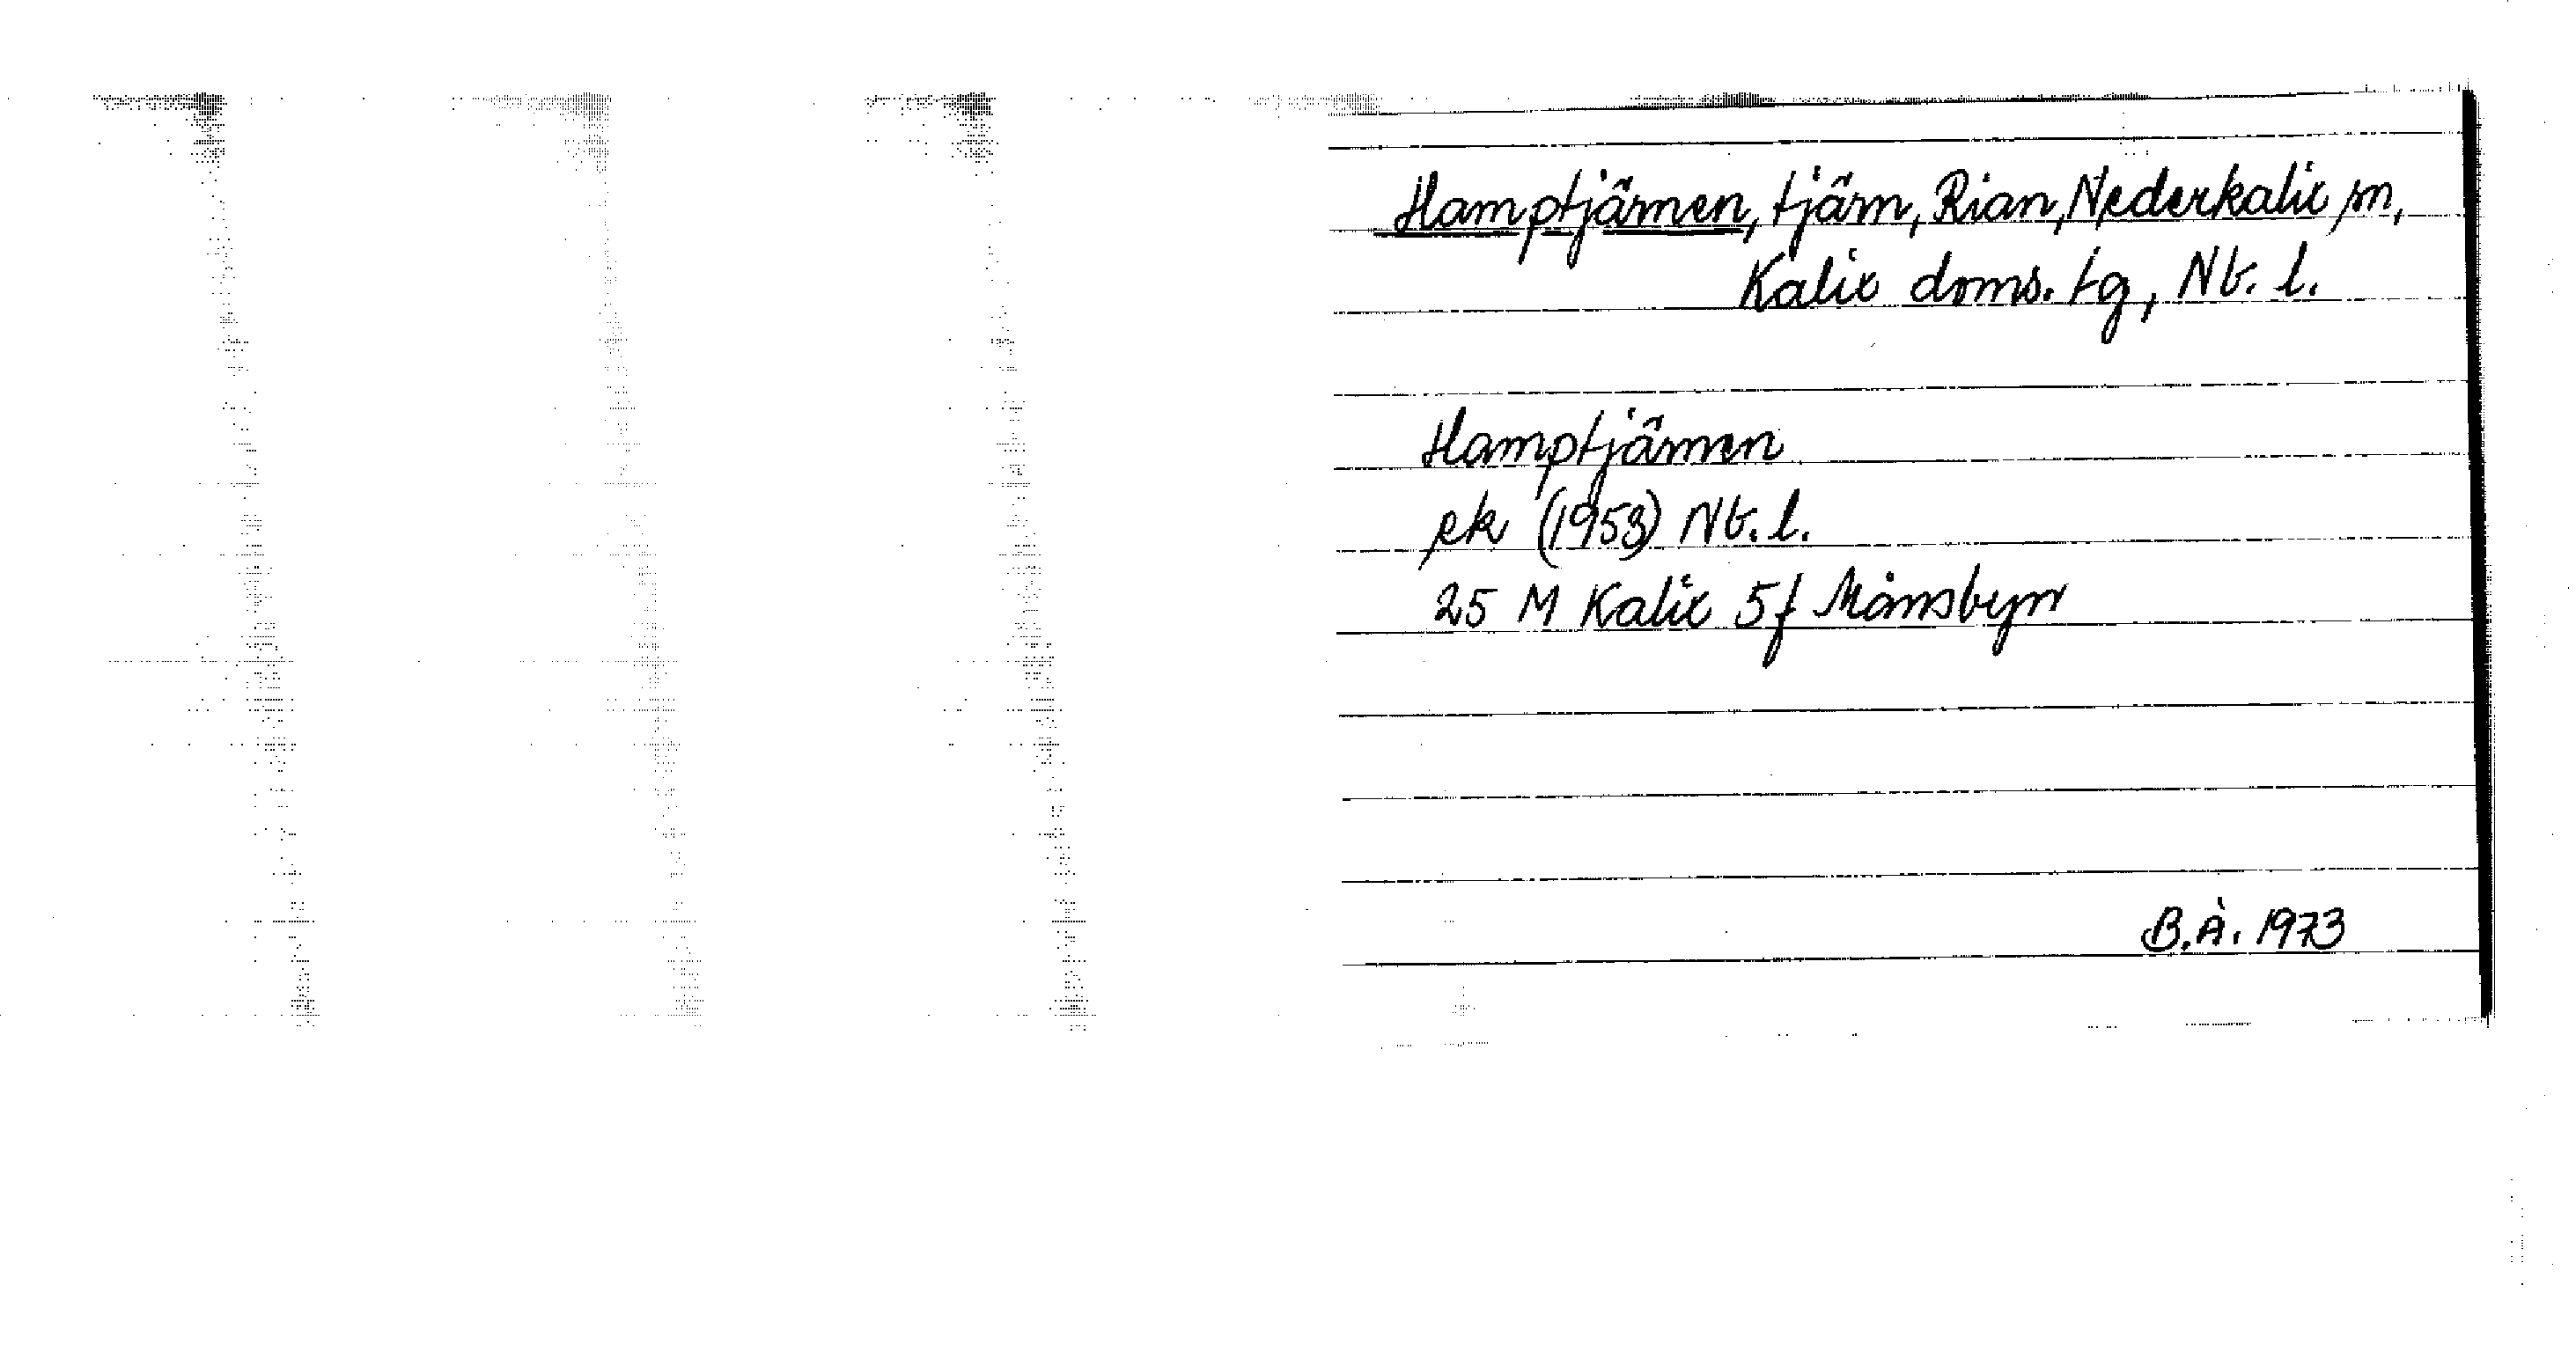 Hamptjärnen, tjärn, Rian, Nederkalix sn,
Kalix doms. tg, Nb. l.
Hamptjärnen
ek (1953) Nb. l.
25 M Kalix 5f Månsbyn
B.Å. 1973